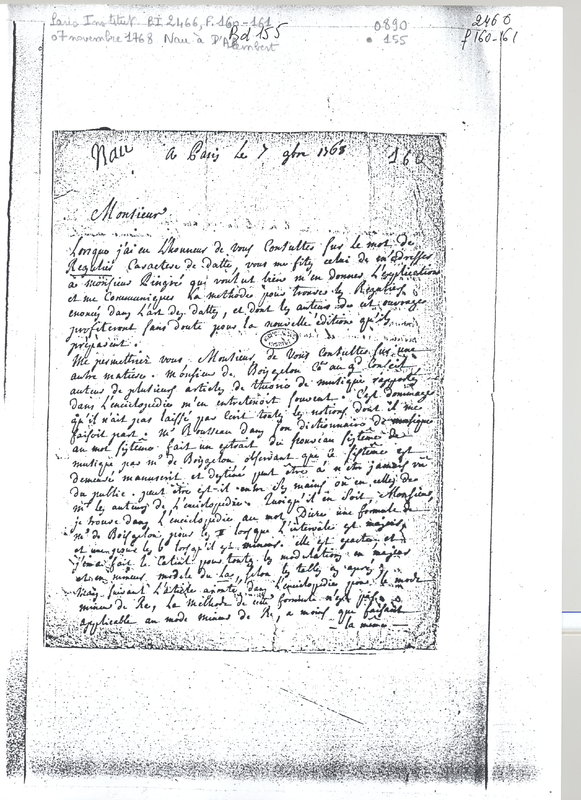 Paris Institut BI 2466, f. 160-161
07 novembre 1768 Nau à D'Alembert
Bd 155
0890
155
2466
f 160-161
Nau
a Paris le 7 9bre 1768
160
Monsieur
Lorsque j'ai eu L'honneur de vous Consulter Sur Le mot de
Regulier Caractere de datte, vous me fites celui de m'adresser
a monsieur Pingré qui voulut bien m'en donner L'explication
et me Communiquer La méthode pour trouver les Reguliers
enoncés dans L'art des dattes, et dont les auteurs de cet ouvrages
profiteront sans doute pour la nouvelle édition qu'ils
préparent.
Me permettrez vous Monsieur, de Vous Consulter sur une
autre matiere. Monsieur de Boisgelou Cer au gd Conseil
auteur de plusieurs articles de theorie de musique rapportés
dans L'enciclopedie m'en entretenoit souvent. C'est dommage
qu'il n'ait pas laissé par écrit toutes les notions dont il me
faisoit part. Mr Rousseau dans son dictionnaire de musique
au mot Systême fait un extrait du nouveau Systême de
musique par mr de Boisgelou observant que ce Systême est
demeuré manuscrit et destiné peut être à n'etre jamais vû
du public. peut être est-il entre Ses mains ou en celles de
mrs les auteurs de L'enciclopedie. Quoiqu'il en Soit, Monsieur,
je trouve dans L'enciclopedie au mot Dieze une formule de
mr de Boisgelou pour les # lorsque L'intervale est majeur
et une pour les b lorsqu'il est mineur. elle est exacte, et
j'en ai fait le Calcul pour toutes les modulations en majeur
et en mineur, mode du La, Selon les tables cy après
Mais suivant L'article dans L'enciclopedie pour le mode
mineur de Re, La méthode de cette formule n'est pas
applicable au mode mineur de Re, a moins que faisant
la même